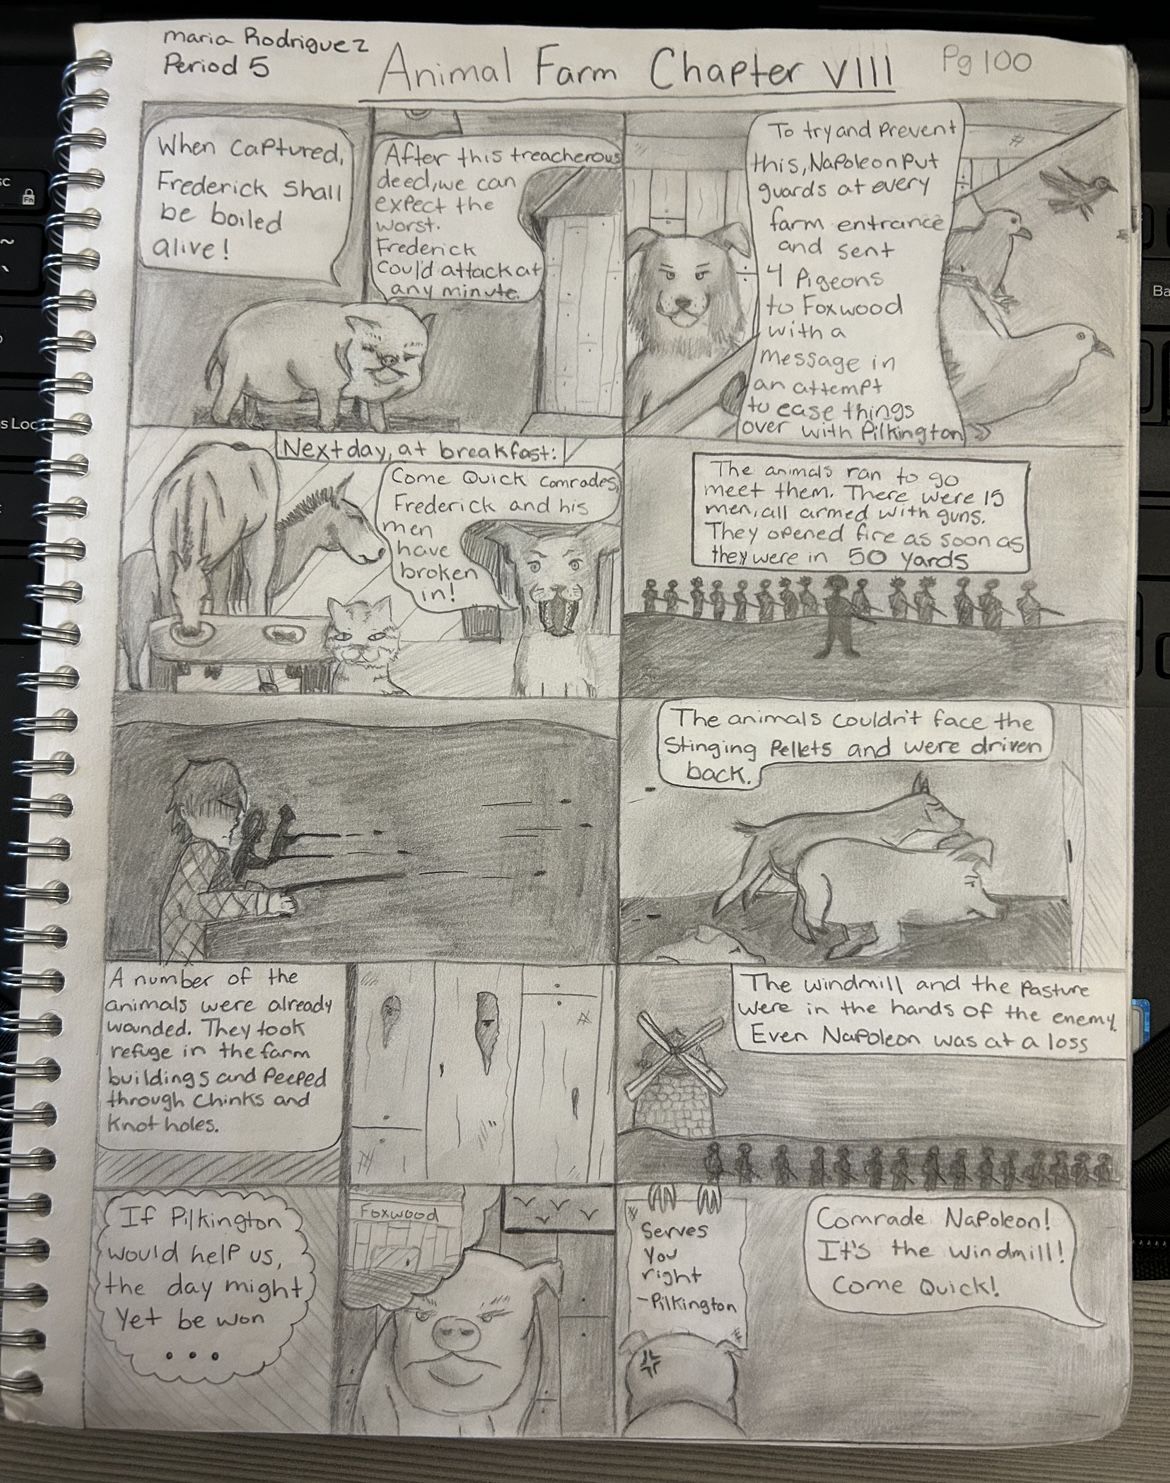 maria Rodriguez
Period 5
Animal Farm Chapter VIII
Pg 100
When captured,
Frederick shall
be boiled
alive!
After this treacherous
deed, we can
expect the
worst.
Frederick
could attack at
any minute.
To try and prevent
this, Napoleon put
guards at every
farm entrance
and sent
4 Pigeons
to Foxwood
with a
message in
an attempt
to ease things
over with Pilkington
Next day, at breakfast:
Come Quick comrades,
Frederick and his
men
have
broken
in!
The animals ran to go
meet them. There were 15
men, all armed with guns.
They opened fire as soon as
they were in 50 yards
The animals couldn't face the
Stinging Pellets and were driven
back.
A number of the
animals were already
wounded. They took
refuge in the farm
buildings and Peeped
through chinks and
knot holes.
The windmill and the Pasture
were in the hands of the enemy.
Even Napoleon was at a loss
If Pilkington
would help us,
the day might
Yet be won
...
Foxwood
Serves
You
right
-Pilkington
Comrade Napoleon!
It's the windmill!
Come Quick!